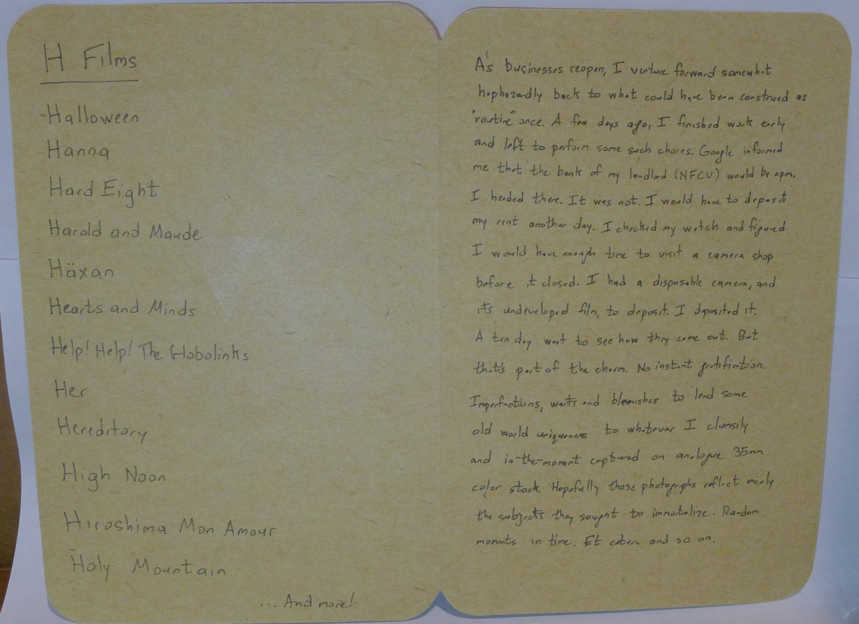 H Films
-Halloween
Hanna
Hard Eight
Harold and Maude
Häxan
Hearts and Minds
Help! Help! The Globolinks
Her
Hereditary
High Noon
Hiroshima Mon Amour
Holy Mountain
...And more!
As businesses reopen, I venture forward somewhat
haphazardly back to what could have been construed as
"routine" once. A few days ago, I finished work early
and left to perform some such chores. Google informed
me that the bank of my landlord (NFCU) would be open.
I headed there. It was not. I would have to deposit
my rent another day. I checked my watch and figured
I would have enough time to visit a camera shop
before it closed. I had a disposable camera, and
it's undeveloped film, to deposit. I deposited it.
A ten day wait to see how they come out. But
that's part of the charm. No instant gratification.
Imperfections, warts and blemishes to lend some
old world uniqueness to whatever I clumsily
and in-the-moment captured on analogue 35mm
color stock. Hopefully those photographs reflect nicely
the subjects they sought to immortalize. Random
moments in time. Et cetera and so on.